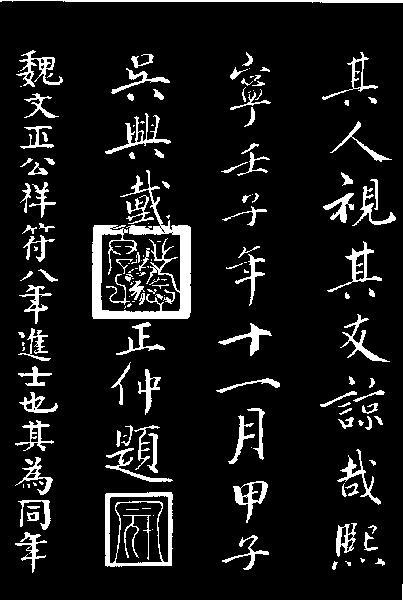 其人視其友諒哉熙
寧壬子年十一月甲子
吳興戴蒙正仲題
魏文正公祥符八年進士也其為同年